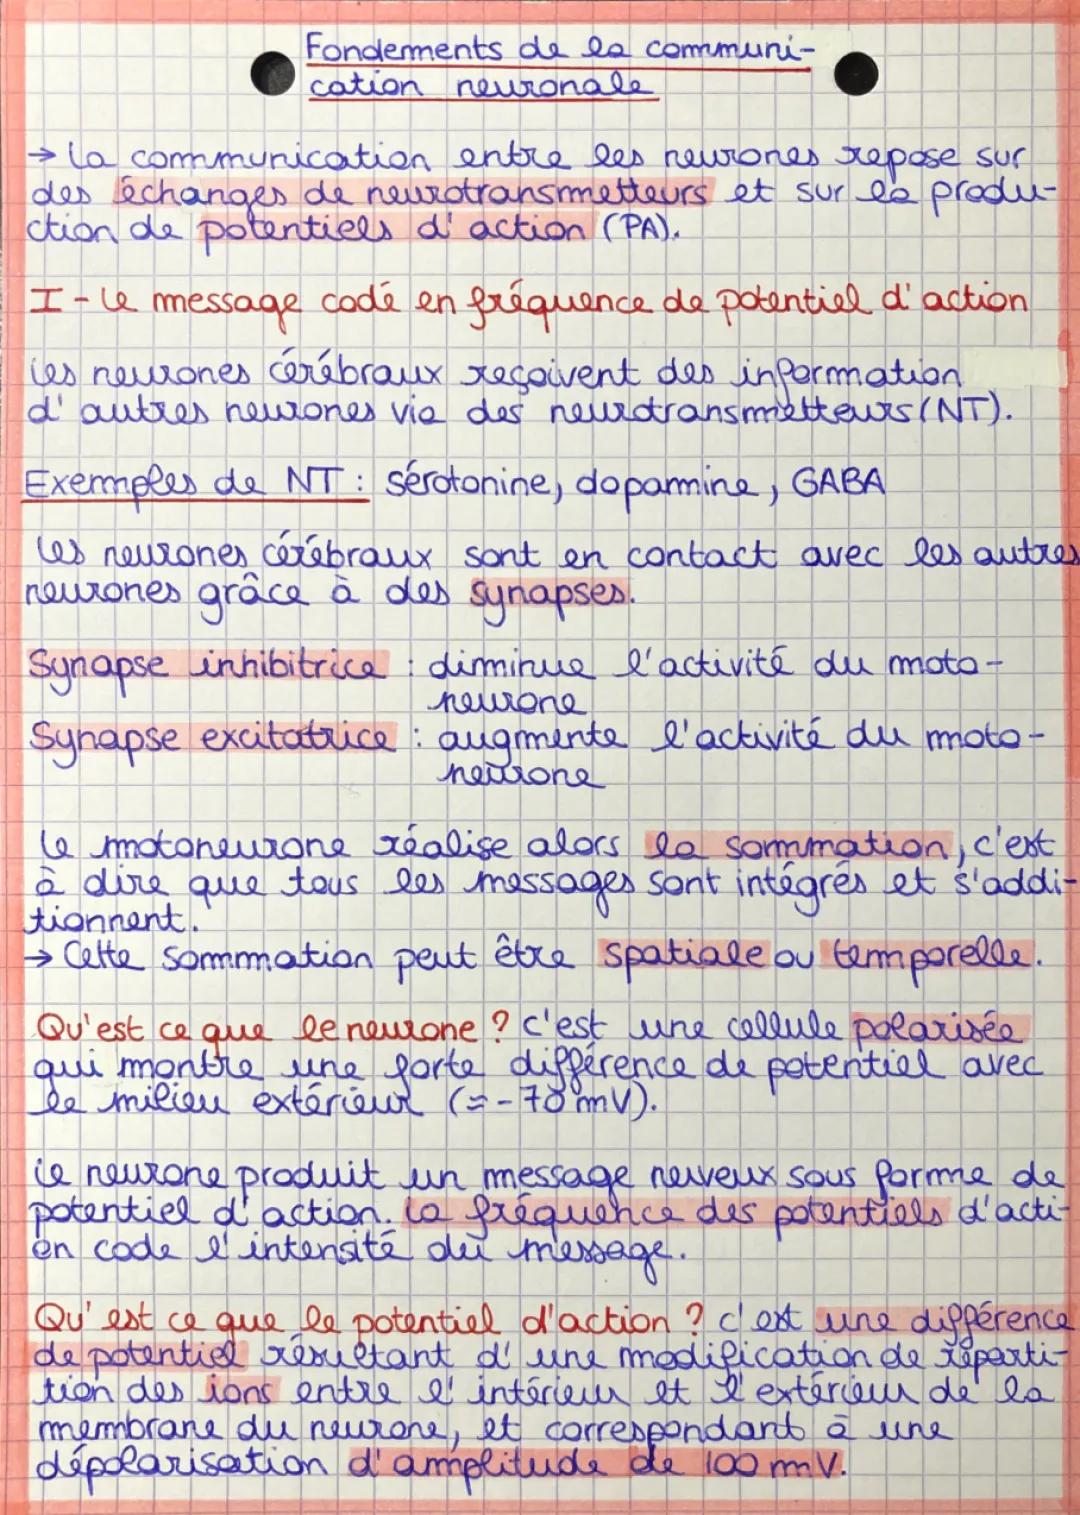 Fondements de la communi-
cation neuronale
→ La communication entre les neurones repose sur
des échanges de neurotransmetteurs et sur la produ-
ction de potentiels d'action (PA).
I - Le message codé en fréquence de potentiel d'action
Les neurones cérébraux reçoivent des information
d'autres neurones via des neurotransmetteurs (NT).
Exemples de NT : sérotonine, dopamine, GABA
Les neurones cérébraux sont en contact avec les autres
neurones grâce à des synapses.
Synapse inhibitrice : diminue l'activité du moto-
neurone
Synapse excitatrice : augmente l'activité du moto-
neurone
Le motoneurone réalise alors la sommation, c'est
à dire que tous les messages sont intégrés et s'addi-
tionnent.
→ Cette sommation peut être spatiale ou temporelle.
Qu'est ce que le neurone ? c'est une cellule polarisée
qui montre une forte différence de potentiel avec
le milieu extérieur (= -70 mV).
Le neurone produit un message nerveux sous forme de
potentiel d'action. La fréquence des potentiels d'acti-
on code l'intensité du message.
Qu'est ce que le potentiel d'action ? c'est une différence
de potentiel résultant d'une modification de réparti-
tion des ions entre l'intérieur et l'extérieur de la
membrane du neurone, et correspondant à une
dépolarisation d'amplitude de 100 mV.